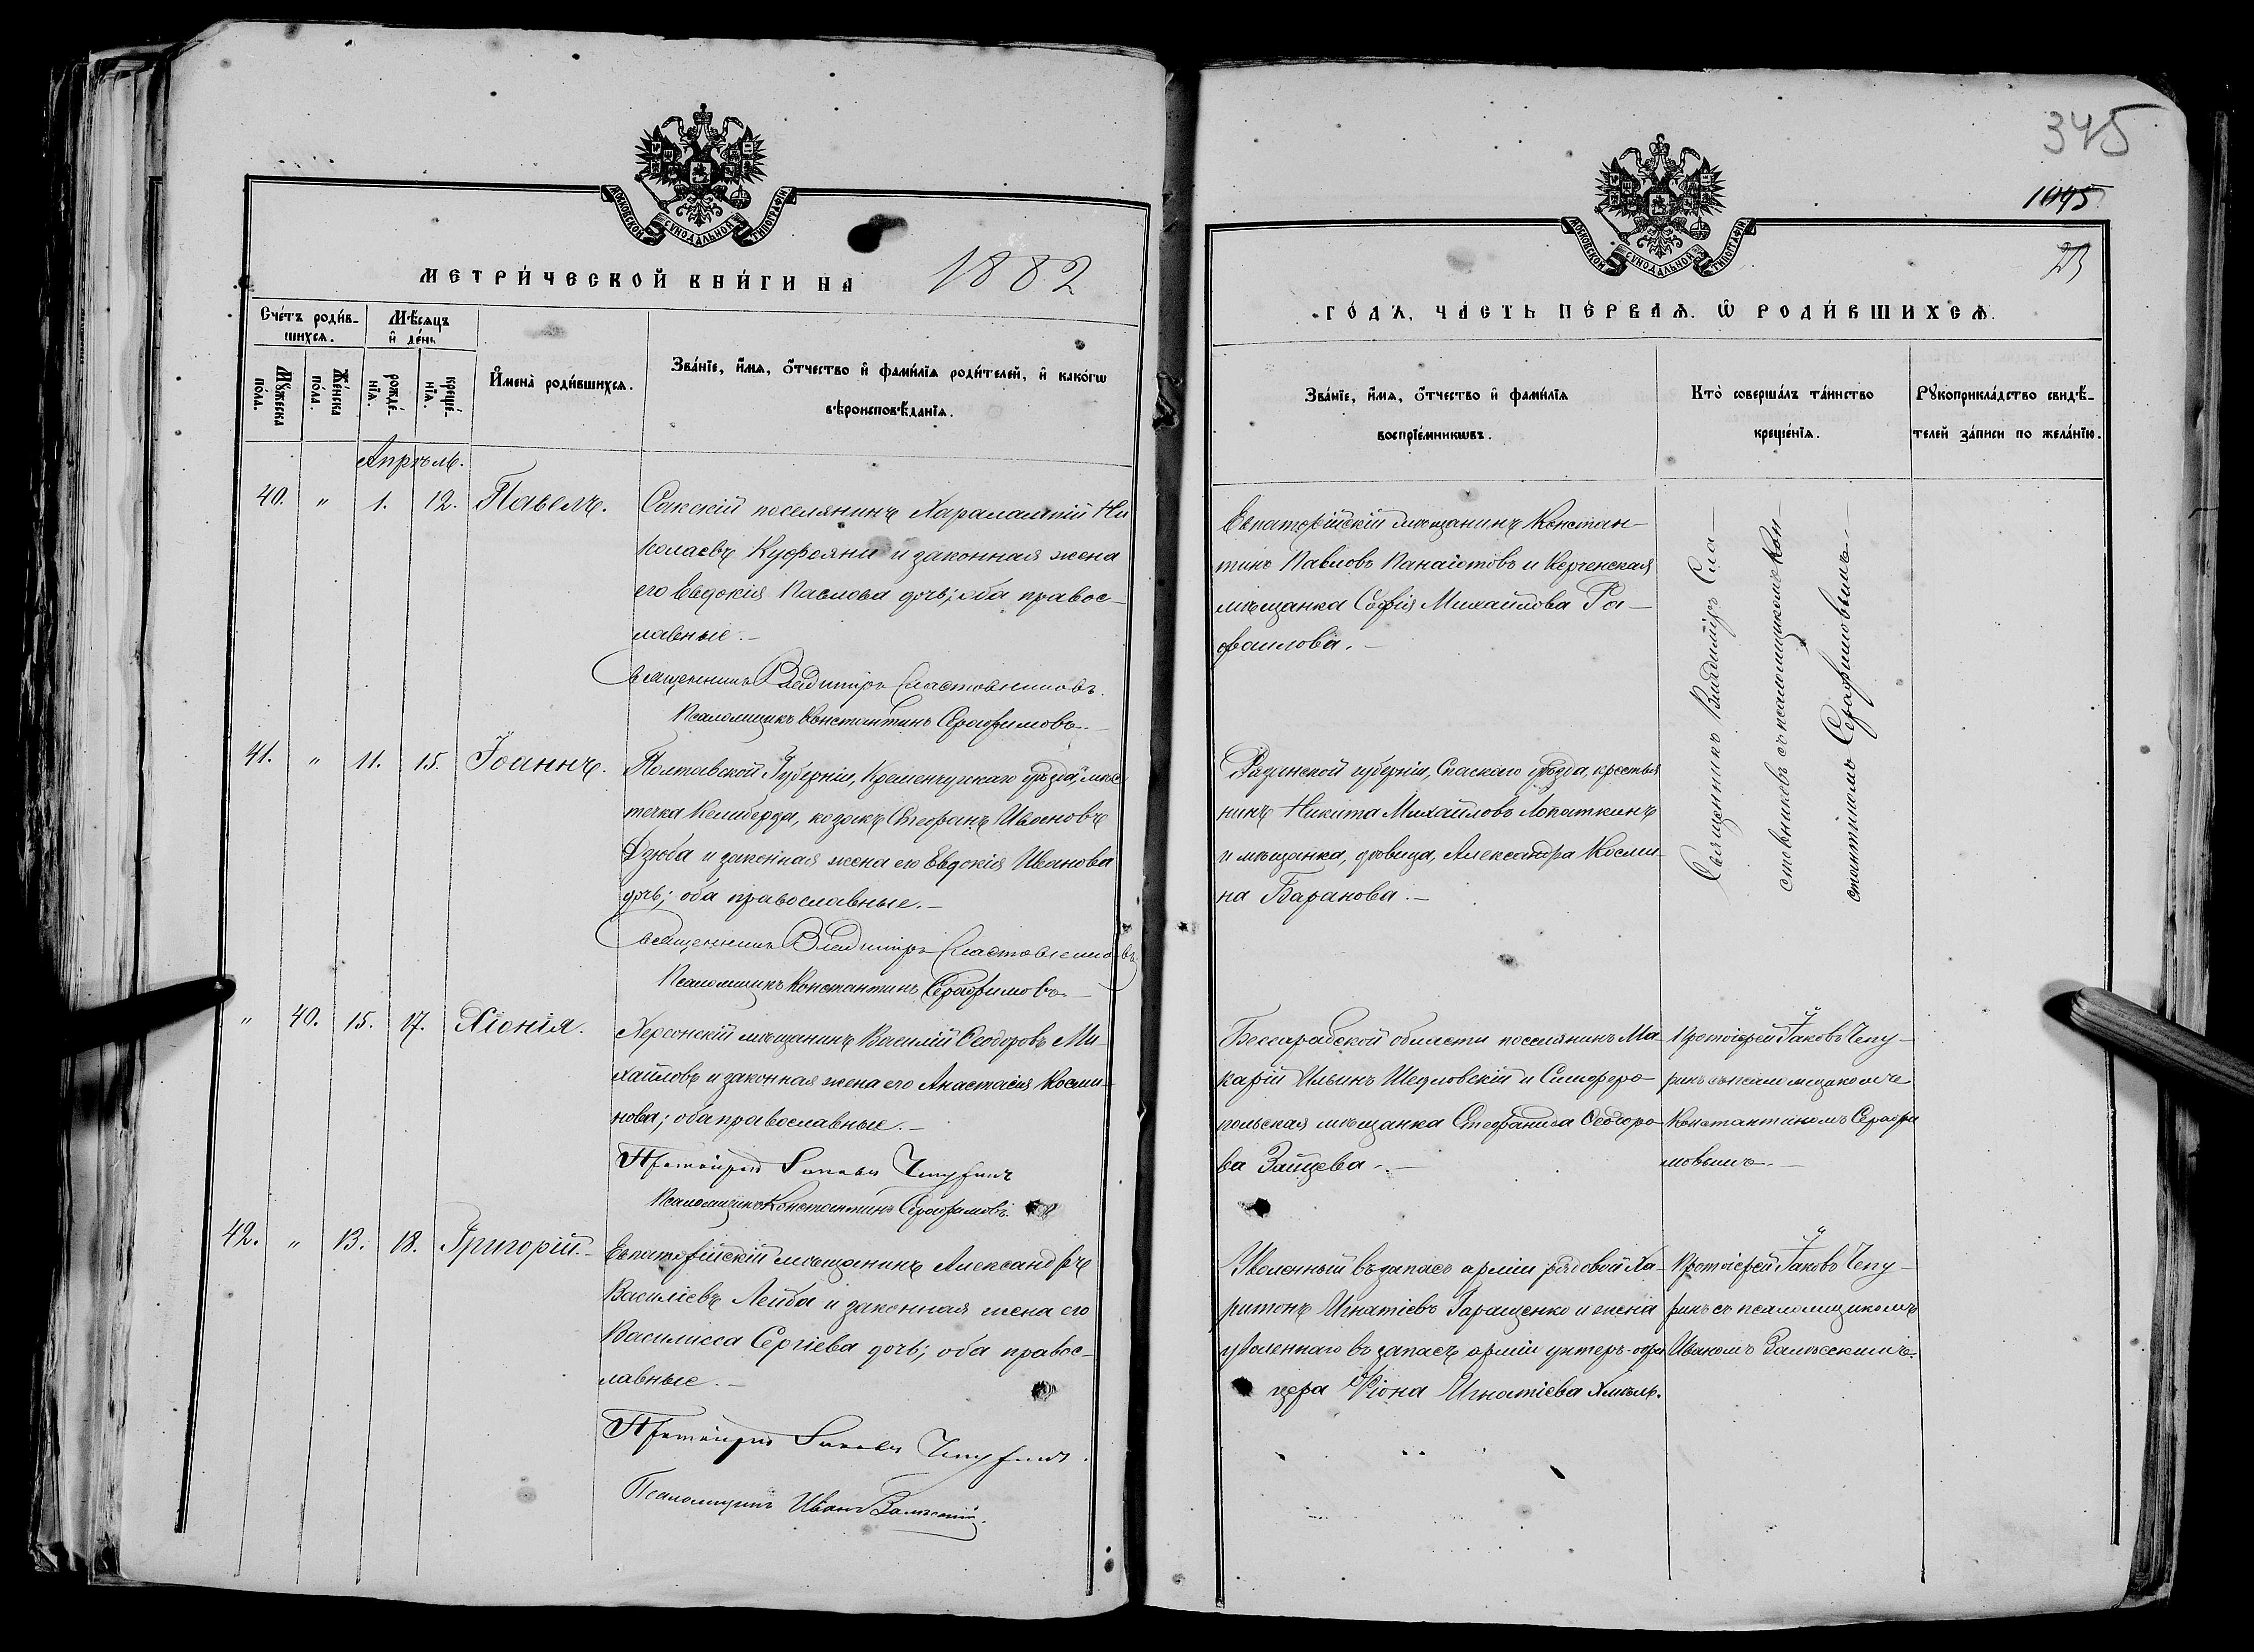 МОСКОВСКОЙ СѴНОДАЛЬНОЙ ТИПОГРАФІИ
МЕТРИ́ЧЕСКОЙ КНИ́ГИ НА 1882
Сче́тъ роди́в-
шихсѧ.
Мѣ́сѧцъ
и҆ де́нь
Мꙋ́жеска
по́ла.
Же́нска
по́ла.
рожде́-
нїѧ.
креще́-
нїѧ.
И҆мена̀ роди́вшихсѧ.
Зва́нїе, и҆́мѧ, ѻ҆́тчество и҆ фами́лїѧ роди́телей, и҆ како́гѡ
вѣроисповѣ́данїѧ.
Апрѣль.
40. " 1. 12. Павелъ.
Сакскій поселянинъ Харалампій Ни
колаевъ Куфояни и законная жена
его Евдокія Павлова дочь; оба правос-
лавные.-
Священникъ Владиміръ Сластовниковъ.
Псаломщикъ Константинъ Серафимовъ.-
41. " 11. 15. Іоаннъ.
Полтавской Губерніи, Кременчугскаго уѣзда, мѣс
течка Келиберда, козакъ Стефанъ Ивановъ
Дзюба и законная жена его Евдокія Иванова
дочь; оба православные.-
Священникъ Владиміръ Сластовниковъ.
Псаломщикъ Константинъ Серафимовъ.-
" 40. 15. 17. Хіонія.
Херсонскій мѣщанинъ Василій Ѳеодоровъ Ми-
хайловъ и законная жена его Анастасія Косми-
нова; оба православные.-
Протоіерей Іаковъ Чепуринъ
Псаломщикъ Константинъ Серафимовъ.
42. " 13. 18. Григорій.-
Евпаторійскій мѣщанинъ Александръ
Василіевъ Лейба и законная жена его
Василисса Сергіева дочь; оба правос-
лавные.-
Протоіерей Іаковъ Чепуринъ.
Псаломщикъ Иванъ Залѣсскій.
345
1045
23
МОСКОВСКОЙ СѴНОДАЛЬНОЙ ТИПОГРАФІИ
ГО́ДЪ, ЧА́СТЬ ПЕ́РВАѦ. Ѡ҆ РОДИ́ВШИХСѦ.
Зва́нїе, и҆́мѧ, ѻ҆́тчество и҆ фами́лїѧ
воспрїе́мникѡвъ.
Кто̀ соверша́лъ та́инство
креще́нїѧ.
Рꙋкоприкла́дство свидѣ́-
телей за́писи по жела́нїю.
Евпаторійскій мѣщанинъ Констан-
тинъ Павловъ Панаіотовъ и Керченская
мѣщанка Софія Михайлова Ра-
фаилова.-
Священникъ Владиміръ Сла-
стовниковъ съ псаломщикомъ Кон-
стантиномъ Серафимовымъ.-
Рязанской губерніи, Спаскаго уѣзда, крестья
нинъ Никита Михайловъ Лопаткинъ
и мѣщанка, дѣвица, Александра Косми-
на Баранова.-
Бессарабской области поселянинъ Ма-
карій Ильинъ Шедловскій и Симферо-
польская мѣщанка Стефанида Ѳеодоро-
ва Зайцева.-
Протоіерей Іаковъ Чепу-
ринъ съ псаломщикомъ
Константиномъ Серафи
мовымъ.-
Уволенный въ запасъ арміи рядовой Ха-
ритонъ Игнатіевъ Геращенко и жена
уволеннаго въ запасъ арміи унтеръ-офи
цера Игнатіева Хмѣль.
Протоіерей Іаковъ Чепу-
ринъ съ псаломщикомъ
Иваномъ Залѣсскимъ.